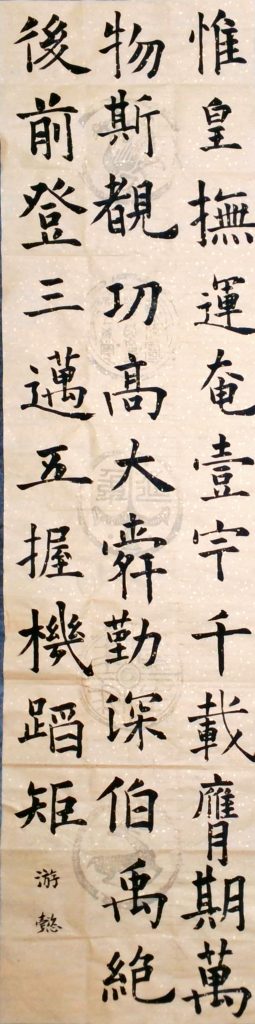 惟皇撫運奄壹宇千載膺期萬
物斯覩功高大舜勤深伯禹絶
後前登三邁五握機蹈矩
游懿